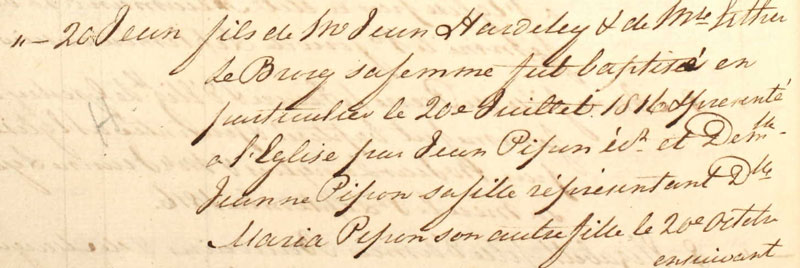 "– 20 Jean fils de Mr Jean Hardeley & de Mde Esther
Le Brocq sa femme fut baptisé en
particulier le 20e Juillet 1816 & presenté
a l'Eglise par Jean Pipon écr. et Demlle
Jeanne Pipon sa fille réprésentant Dlle
Maria Pipon son autre fille le 20e Octobre
ensuivant